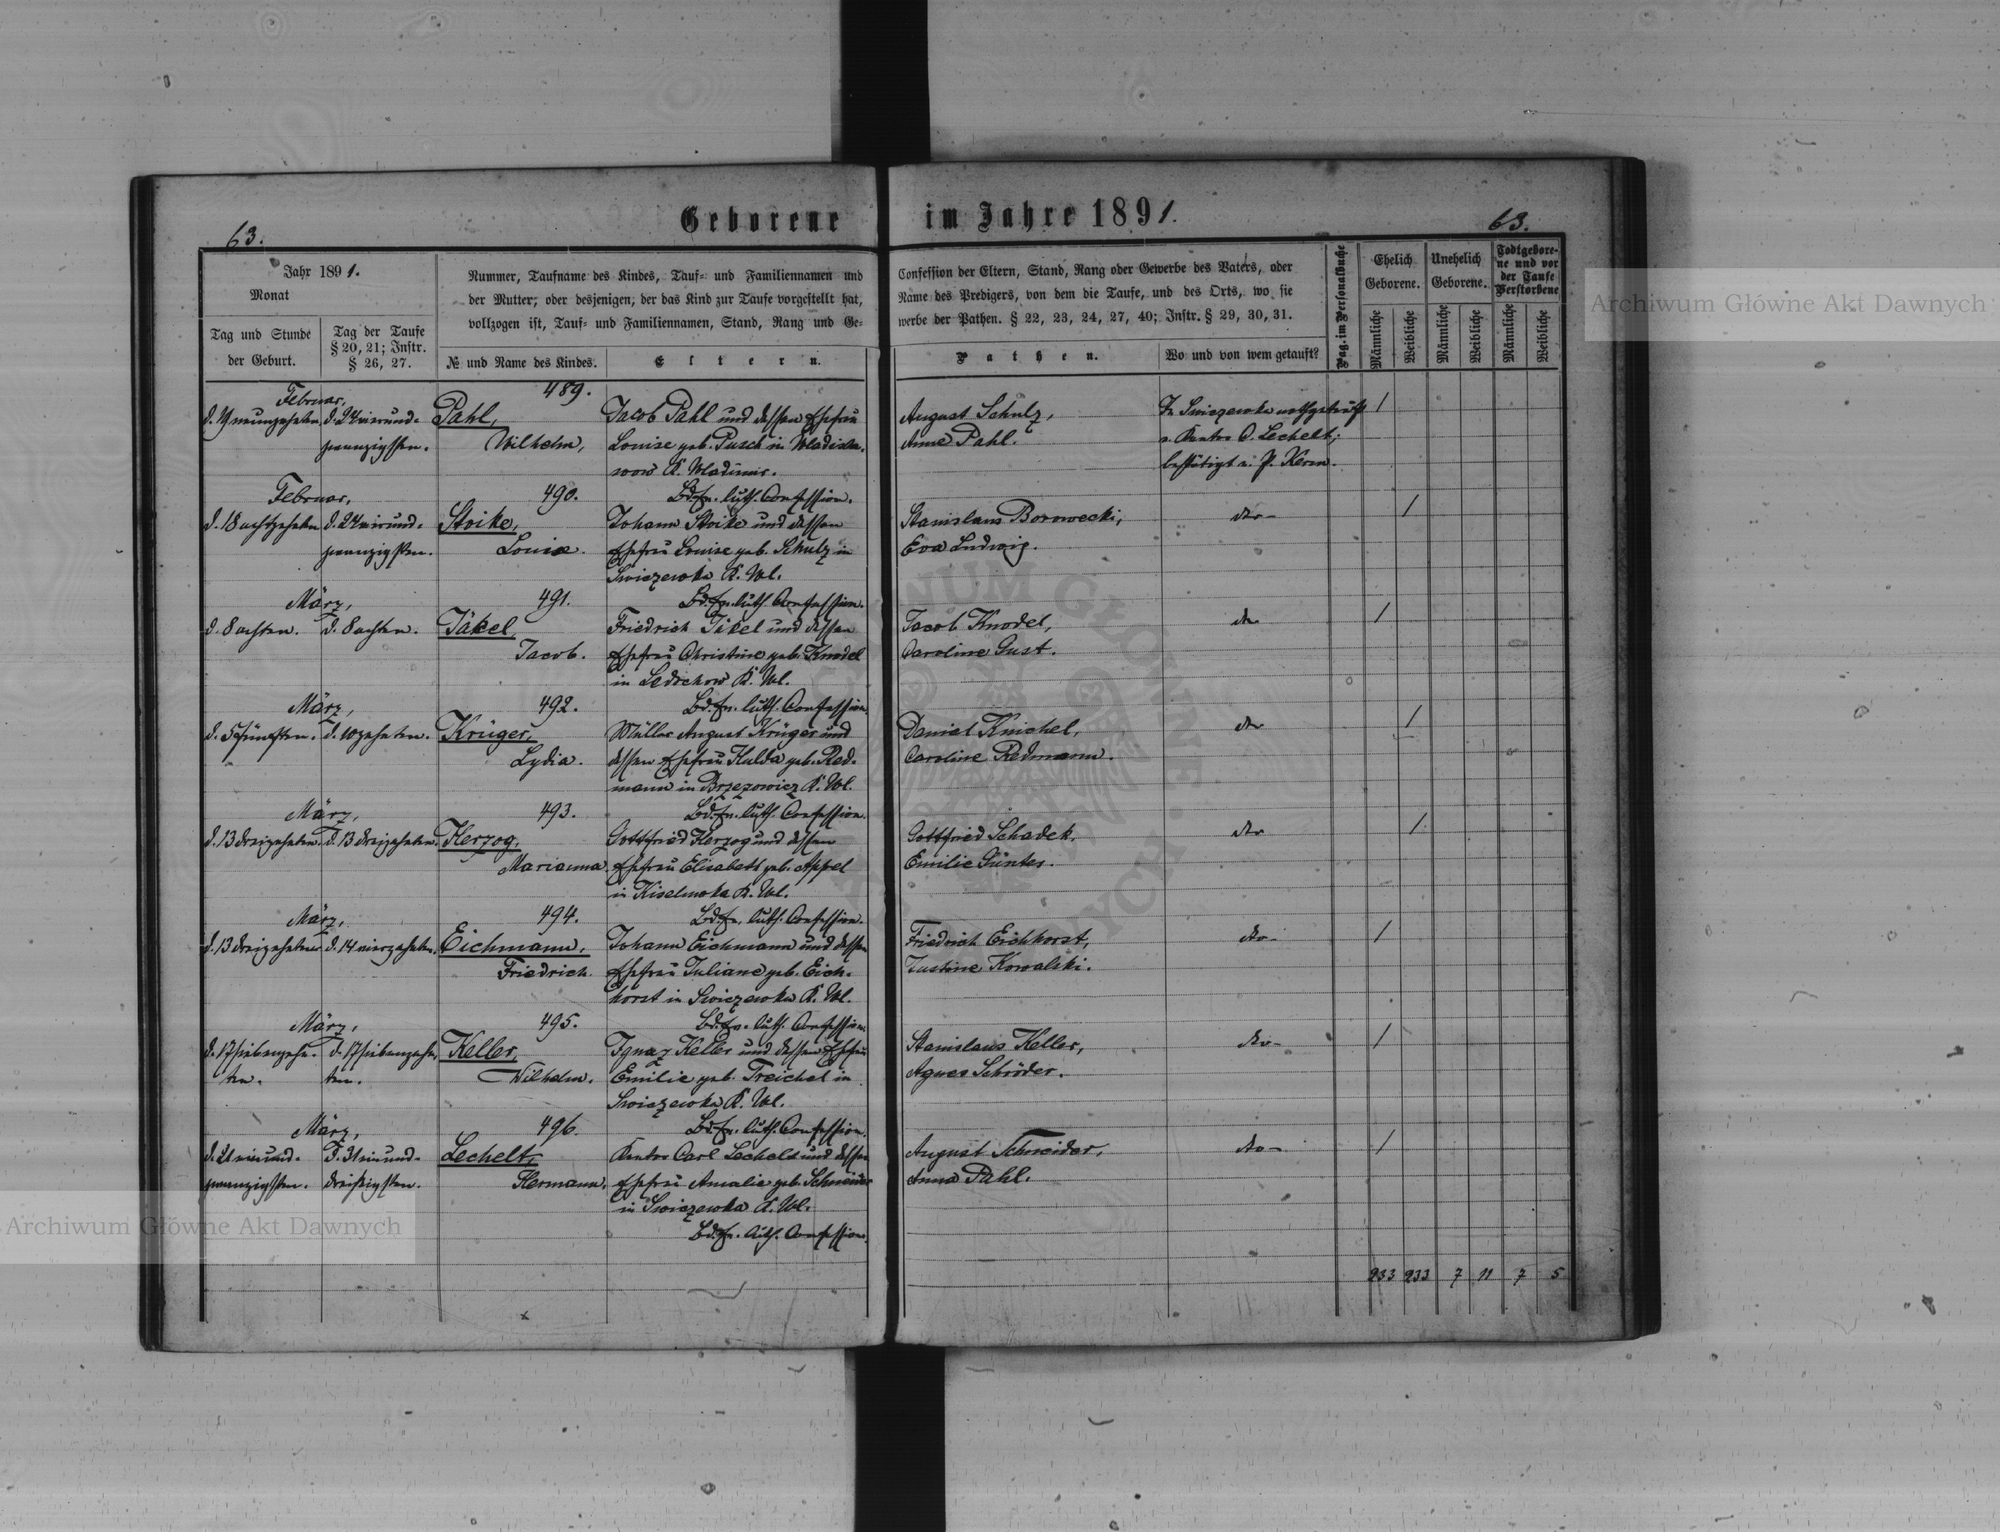 Geborene im Jahre 1891.
63.
63.
Jahr 1891.
Monat
Tag und Stunde
der Geburt.
Tag der Taufe
§ 20, 21; Instr.
§ 26, 27.
Nummer, Taufname des Kindes, Tauf- und Familiennamen und
der Mutter; oder desjenigen, der das Kind zur Taufe vorgestellt hat,
vollzogen ist, Tauf- und Familiennamen, Stand, Rang und Ge-
№ und Name des Kindes.
Eltern.
Confession der Eltern, Stand, Rang oder Gewerbe des Vaters, oder
Name des Predigers, von dem die Taufe, und des Orts, wo sie
werbe der Pathen. § 22, 23, 24, 27, 40; Instr. § 29, 30, 31.
Pathen.
Wo und von wem getauft?
Pag. im Personalbuche
Ehelich
Geborene.
Männliche
Weibliche
Unehelich
Geborene.
Männliche
Weibliche
Todtgebore-
ne und vor
der Taufe
Verstorbene
Männliche
Weibliche
Februar,
489.
d. 19 neunzehnten d. 24 vierund-
zwanzigsten.
Pahl,
Wilhelm,
Jacob Pahl und dessen Ehefrau
Louise geb. Pusch in Wladisla-
wow K. Wladimir.
Bd. Ev. luth. Confession.
August Schulz,
Anna Pahl.
In Swiczewka nothgetauft
v. Kantor C. Lechelt;
bestätigt v. P. Kerm.
1
Februar,
490.
d. 18 achtzehnten d. 24 vierund-
zwanzigsten.
Stoike,
Louise.
Johann Stoike und dessen
Ehefrau Louise geb. Schulz in
Swiczewka K. Wl.
Bd. Ev. luth. Confession.
Stanislaus Borowecki,
Eva Ludwig.
dto-
1
März,
491.
d. 8 achten. d. 8 achten.
Jäkel,
Jacob.
Friedrich Jäkel und dessen
Ehefrau Christine geb. Knodel
in Ledochow K. Wl.
Bd. Ev. luth. Confession.
Jacob Knodel,
Caroline Gust.
dto
1
März,
492.
d. 5 fünften. d. 10 zehnten.
Krüger,
Lydia.
Müller August Krüger und
dessen Ehefrau Hulda geb. Red-
mann in Brzezowicz K. Wl.
Bd. Ev. luth. Confession.
Daniel Knichel,
Caroline Redmann.
dto
1
März,
493.
d. 13 dreizehnten. d. 13 dreizehnten.
Herzog,
Marianna.
Gottfried Herzog und dessen
Ehefrau Elisabeth geb. Appel
in Kiselewka K. Wl.
Bd. Ev. luth. Confession.
Gottfried Schadek,
Emilie Günter.
dto
1
März,
494.
d. 13 dreizehnten d. 14 vierzehnten.
Eichmann,
Friedrich.
Johann Eichmann und dessen
Ehefrau Juliane geb. Eich-
horst in Swiczewka K. Wl.
Bd. Ev. luth. Confession.
Friedrich Eichhorst,
Justine Kowalski.
dto-
1
März,
495.
d. 17 siebenzehn- d. 17 siebenzehn-
ten. ten.
Keller,
Wilhelm.
Ignaz Keller und dessen Ehefrau
Emilie geb. Treichel in
Swiczewka K. Wl.
Bd. Ev. luth. Confession.
Stanislaus Keller,
Agnes Schröder.
dto-
1
März,
496.
zwanzigsten. dreißigsten.
Lechelt,
Hermann.
Kantor Carl Lechelt und dessen
Ehefrau Amalie geb. Schneider
in Swiczewka K. Wl.
Bd. Ev. luth. Confession.
August Schneider,
Anna Pahl.
dto-
1
233 233 7 11 7 5
Archiwum Główne Akt Dawnych
Archiwum Główne Akt Dawnych